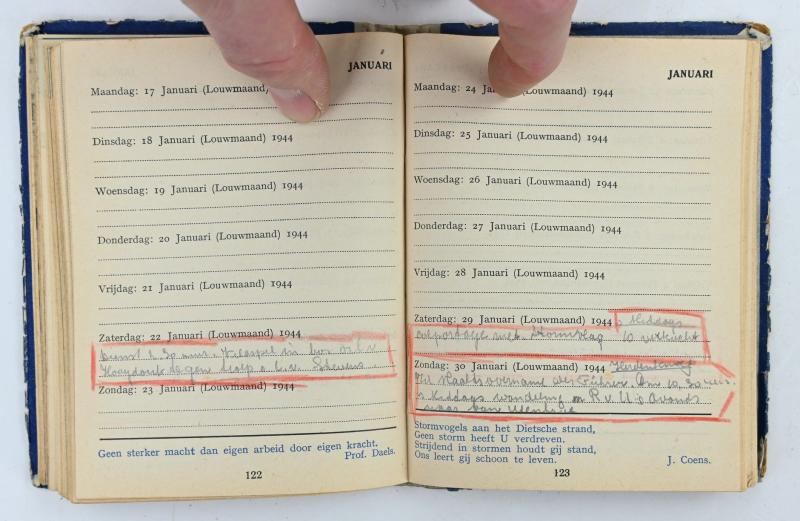 JANUARI
Maandag: 17 Januari (Louwmaand)
Dinsdag: 18 Januari (Louwmaand) 1944
Woensdag: 19 Januari (Louwmaand) 1944
Donderdag: 20 Januari (Louwmaand) 1944
Vrijdag: 21 Januari (Louwmaand) 1944
Zaterdag: 22 Januari (Louwmaand) 1944
in
Zondag: 23 Januari (Louwmaand) 1944
Geen sterker macht dan eigen arbeid door eigen kracht.
Prof. Daels.
122
JANUARI
Maandag: 24 Januari (Louwmaand) 1944
Dinsdag: 25 Januari (Louwmaand) 1944
Woensdag: 26 Januari (Louwmaand) 1944
Donderdag: 27 Januari (Louwmaand) 1944
Vrijdag: 28 Januari (Louwmaand) 1944
Zaterdag: 29 Januari (Louwmaand) 1944 's Middags
colportage met Stormslag 10 verkocht
Zondag: 30 Januari (Louwmaand) 1944 Herdenking
Führer. Om 10.30
's Middags wandeling 's Avonds
naar van
Stormvogels aan het Dietsche strand,
Geen storm heeft U verdreven.
Strijdend in stormen houdt gij stand,
Ons leert gij schoon te leven.
J. Coens.
123